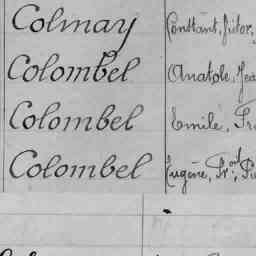 Colmay Constant, Victor,
Colombel Anatole, Jea
Colombel Emile, Fr
Colombel Eugène, Fr.